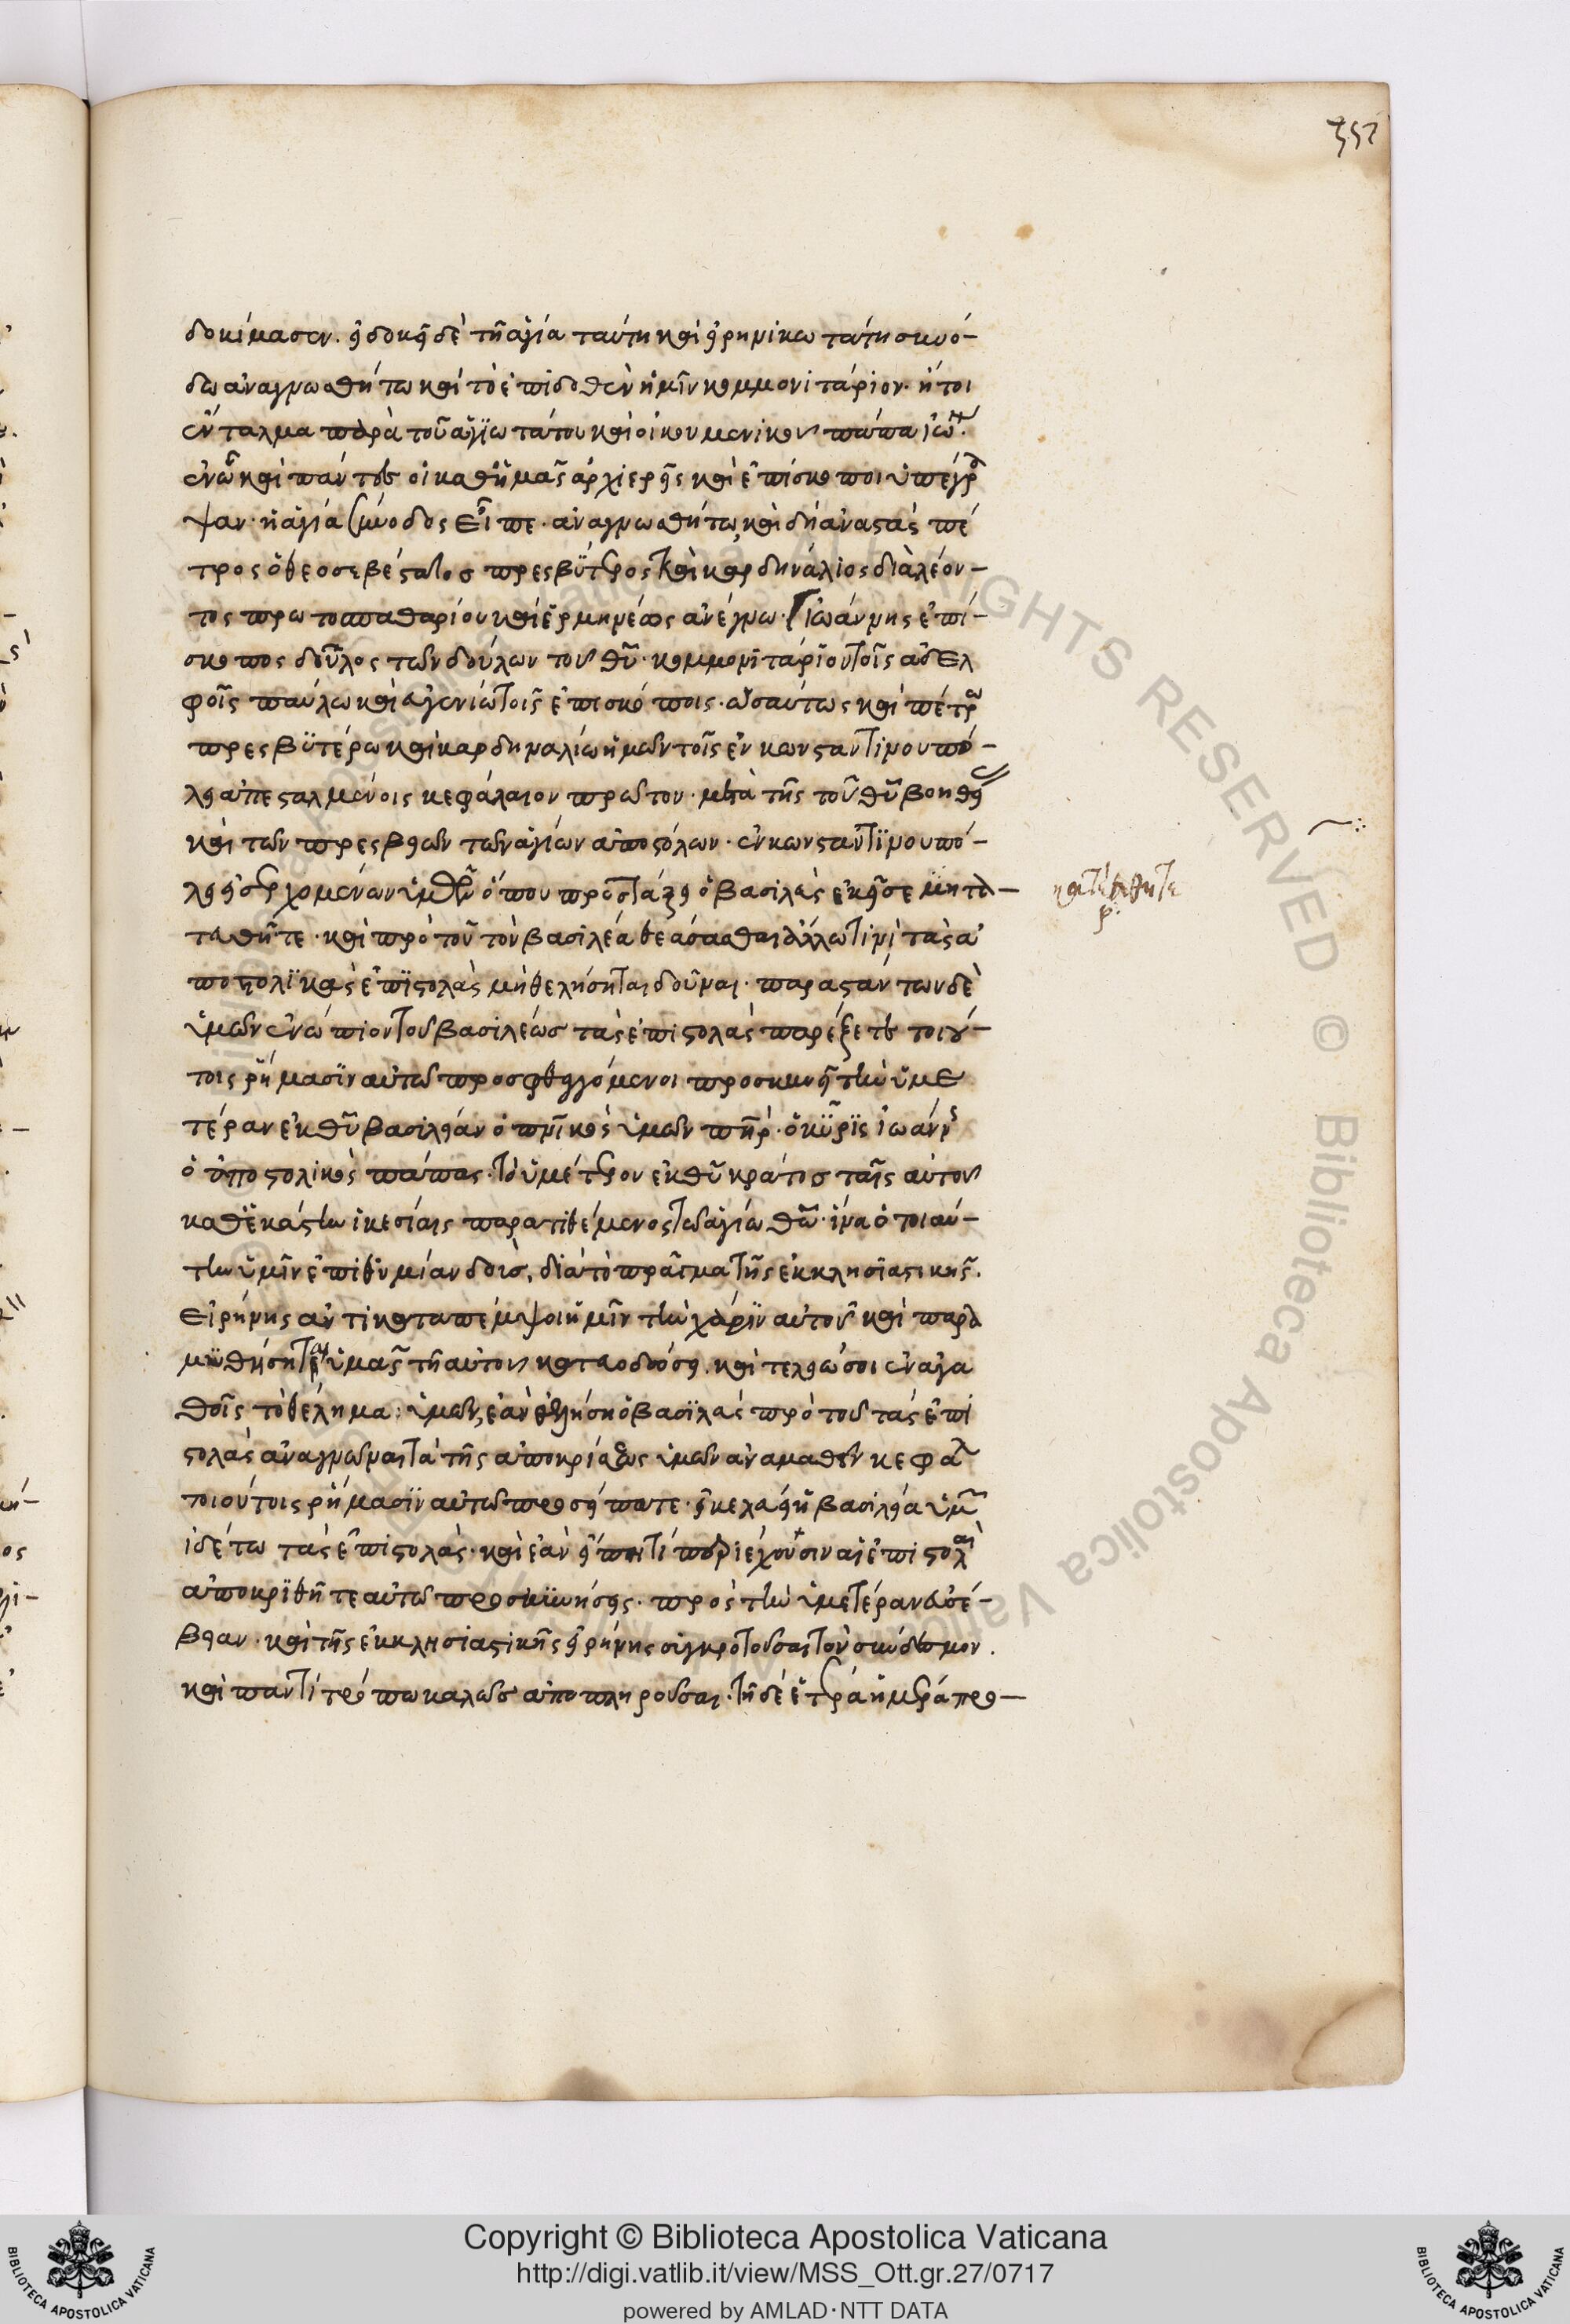 352
δοκίμασεν. εἰ δοκεῖ δὲ τῆ ἁγία ταύτη καὶ εἰρηνικωτάτη συνό-
δω ἀναγνωσθήτω καὶ τὸ ἐπιδοθὲν ἡμῖν κομμονιτάριον. ἤτοι
ἔνταλμα παρὰ τοῦ ἁγιωτάτου καὶ οἰκουμενικοῦ πάπα ἰω.
ἐν ὧ καὶ πάντες οἱ καθ' ἡμᾶς ἀρχιερεῖς καὶ ἐπίσκοποι ὑπέγρα
ψαν. ἡ ἁγία σύνοδος εἶπε. ἀναγνωσθήτω, καὶ δὴ ἀναστὰς πέ
τρος ὁ θεοσεβέστατος πρεσβύτερος καὶ καρδηνάλιος διὰ λέον-
τος πρωτοσπαθαρίου καὶ ἑρμηνέως ἀνέγνω. Ἰωάννης ἐπί-
σκοπος δοῦλος τῶν δούλων τοῦ θυ. κομμονιτάριον τοῖς ἀδελ
φοῖς παύλω καὶ εὐγενίω τοῖς ἐπισκόποις. ὡσαύτως καὶ πέτρω
πρεσβυτέρω καὶ καρδηναλίω ἡμῶν τοῖς ἐν κωνσταντινουπό-
λει ἀπεσταλμένοις κεφάλαιον πρῶτον. μετὰ τῆς τοῦ θυ βοηθεί
καὶ τῶν πρεσβειῶν τῶν ἁγίων ἀποστόλων. ἐν κωνσταντινουπό-
λει εἰσερχομένων ὑμῶν ὅπου προστάξει ὁ βασιλεὺς ἐκεῖσε μητα-
ταθῆτε. καὶ πρὸ τοῦ τὸν βασιλέα θεάσασθαι ἄλλω τινὶ τὰς ἀ
ποστολικὰς ἐπιστολὰς μὴ θελήσηται δοῦναι. παραστάντων δὲ
ὑμῶν ἐνώπιον τοῦ βασιλέως τὰς ἐπιστολὰς παρέξετε τοιού-
τοις ῥήμασιν αὐτῶ προσφθεγγόμενοι προσκυνεῖ τὴν ὑμε
τέραν ἐκ θυ βασιλείαν ὁ πνικὸς ὑμῶν πηρ. ὁ κύρις ἰωάνης
ὁ ἀποστολικὸς πάπας. τὸ ὑμέτερον ἐκ θυ κράτος ταῖς αὐτοῦ
καθ' ἑκάστην ἱκεσίαις παρατιθέμενος τῶ ἁγίω θω. ἵνα ὁ τοιαύ-
την ὑμῖν ἐπιθυμίαν δοὺς, διὰ τὸ πρᾶγμα τῆς ἐκκλησιαστικῆς.
εἰρήνης ἀντικαταπέμψοι ὑμῖν τὴν χάριν αὐτοῦ καὶ παρα
μυθήσηται ὑμᾶς τῆ αὐτοῦ κατευοδώσει. καὶ τελειώσοι ἐν ἀγα
θοῖς τὸ θέλημα ὑμῶν, ἐὰν θελήση ὁ βασιλεὺς πρὸ τοῦ τὰς ἐπι
στολὰς ἀναγνῶναι τὰ τῆς ἀποκρίσεως ὑμῶν ἀναμαθεῖν κεφαλ
τοιούτοις ῥήμασιν αὐτῶ προσείπατε. εἰ κελεύει ἡ βασιλεία ὑμ
ἰδέτω τὰς ἐπιστολὰς. καὶ ἐὰν εἴποι τί περιέχουσιν αἱ ἐπιστολαὶ
ἀποκριθῆτε αὐτῶ προσκυνήσεις. πρὸς τὴν ὑμετέραν εὐσέ-
βειαν. καὶ τῆς ἐκκλησιαστικῆς εἰρήνης συγκροτοῦσαι τὸν σύνδεσμον.
καὶ παντὶ τρόπω καλῶς ἀποπληροῦσαι. τῆ δὲ ἑτέρα ἡμέρα προ-
Copyright © Biblioteca Apostolica Vaticana
http://digi.vatlib.it/view/MSS_Ott.gr.27/0717
powered by AMLAD·NTT DATA